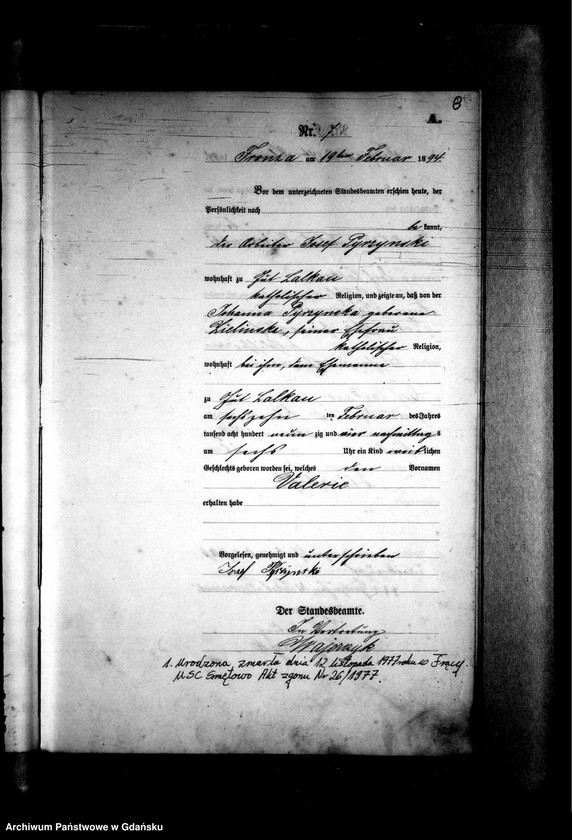 8
A.
Nr. 7.
Fronza am 19ten Februar 1894
Vor dem unterzeichneten Standesbeamten erschien heute, der
Persönlichkeit nach
be kannt,
der Arbeiter Josef Pyrzynski
wohnhaft zu Gut Lalkau
katholischer Religion, und zeigte an, daß von der
Johanna Pyrzynska geborene
Zielinski, seiner Ehefrau
katholischer Religion,
wohnhaft bei ihm, dem Ehemanne
zu Gut Lalkau
am sechszehn ten Februar des Jahres
tausend acht hundert neun zig und vier nachmittag s
um sechs Uhr ein Kind weib lichen
Geschlechts geboren worden sei, welches den Vornamen
Valerie
erhalten habe
Vorgelesen, genehmigt und unterschrieben
Josef Pyrzynski
Der Standesbeamte.
In Vertretung
1. Urodzona zmarła dnia 12 listopada 1977 roku w Frący.
USC Smętowo Akt zgonu Nr 26/1977.
Archiwum Państwowe w Gdańsku